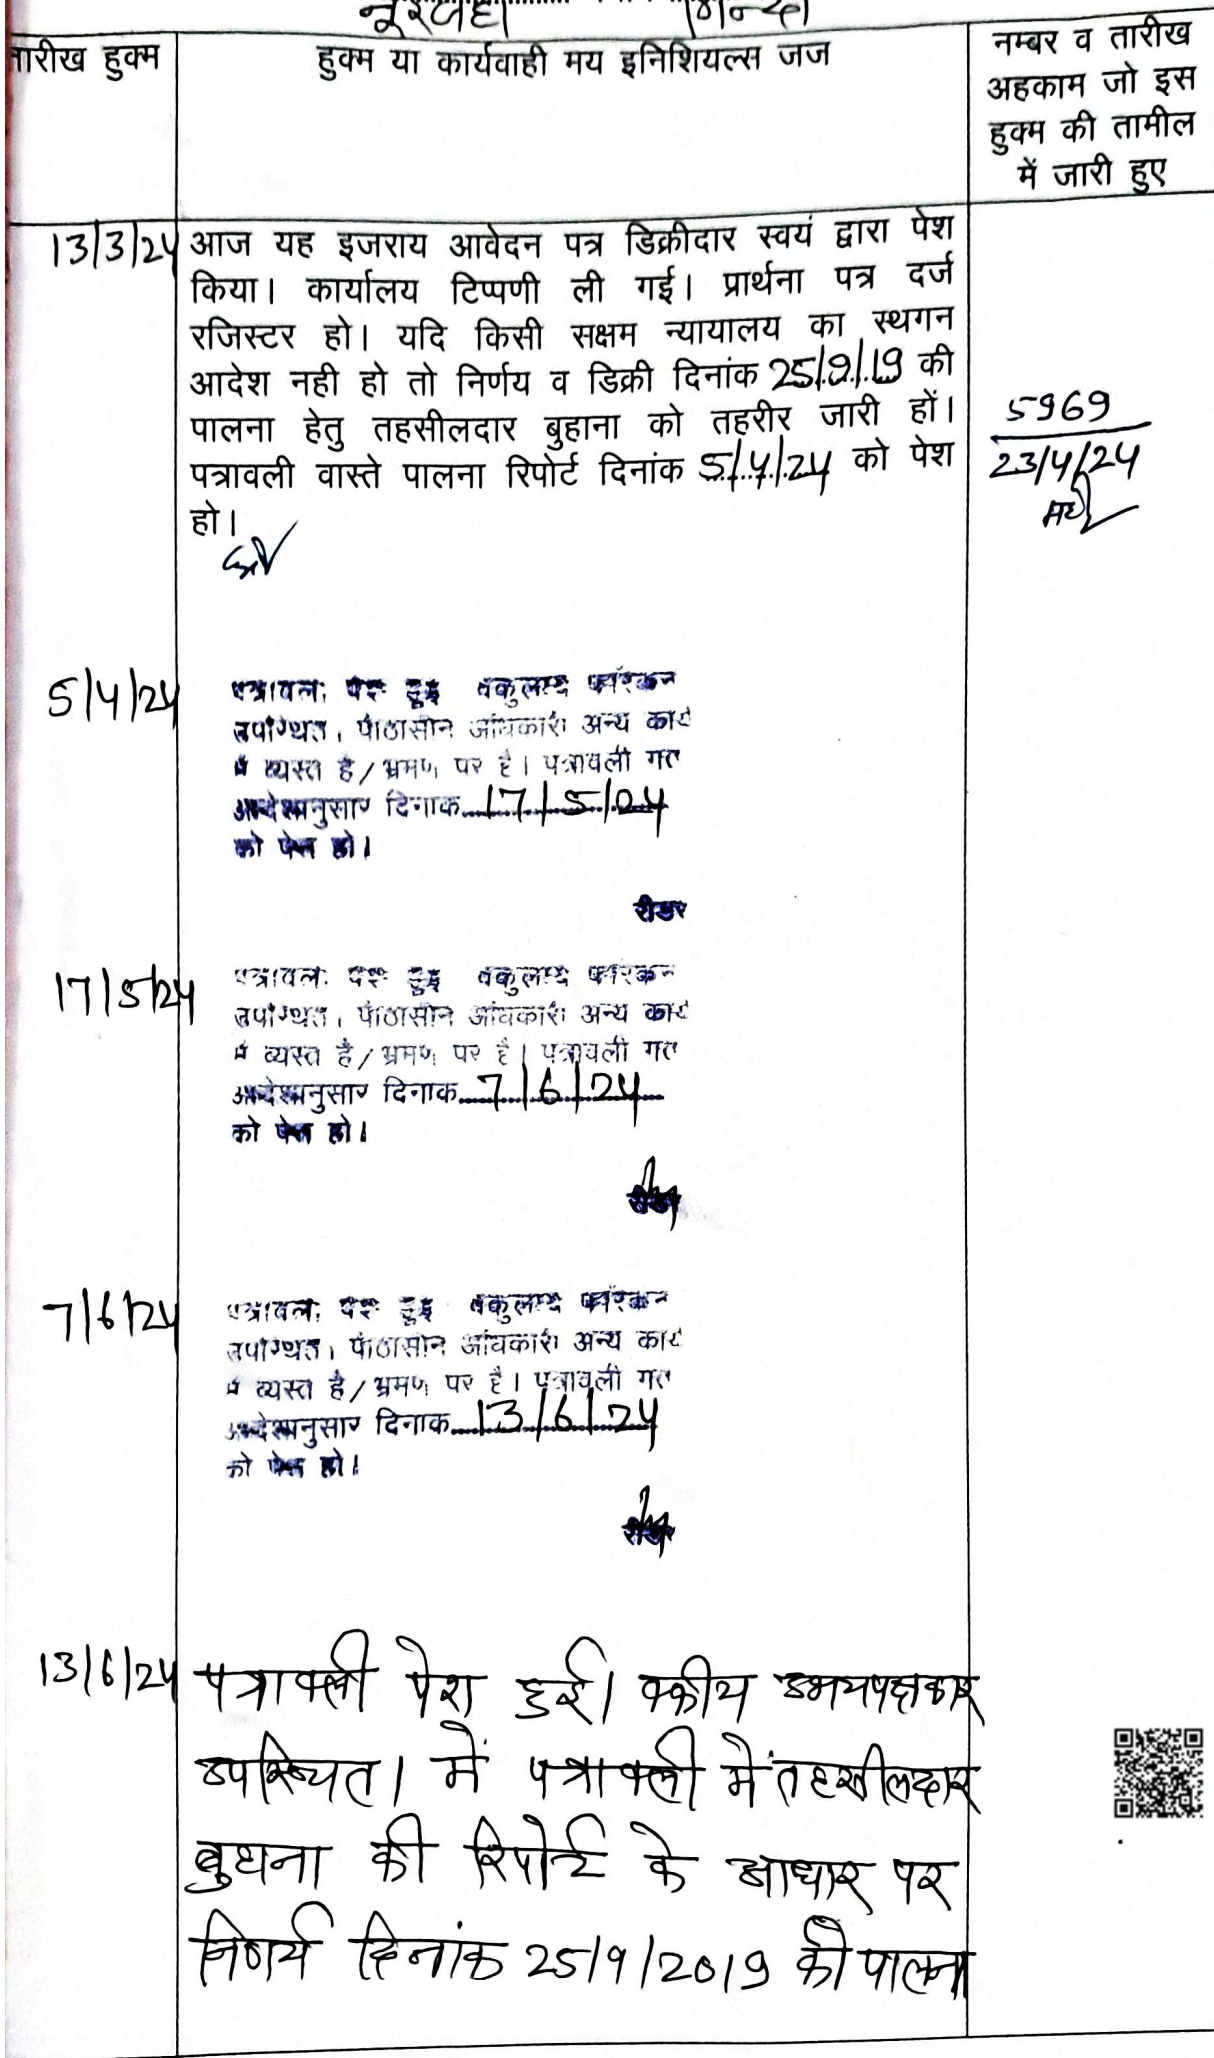 नूरजहां
तारीख हुक्म
हुक्म या कार्यवाही मय इनिशियल्स जज
नम्बर व तारीख
अहकाम जो इस
हुक्म की तामील
में जारी हुए
13/3/24
आज यह इजराय आवेदन पत्र डिक्रीदार स्वयं द्वारा पेश
किया। कार्यालय टिप्पणी ली गई। प्रार्थना पत्र दर्ज
रजिस्टर हो। यदि किसी सक्षम न्यायालय का स्थगन
आदेश नही हो तो निर्णय व डिक्री दिनांक 25/9/19 की
पालना हेतु तहसीलदार बुहाना को तहरीर जारी हों।
पत्रावली वास्ते पालना रिपोर्ट दिनांक 5/4/24 को पेश
हो।
5969
23/4/24
5/4/24
पत्रावली पेश हुई वकुलाय फरिकेन
उपस्थित, पीठासीन अधिकारी अन्य कार्य
में व्यस्त है/भ्रमण पर है। पत्रावली गत
आदेशानुसार दिनाक 17/5/24
को पेश हो।
रीडर
17/5/24
पत्रावली पेश हुई वकुलाय फरिकेन
उपस्थित, पीठासीन अधिकारी अन्य कार्य
में व्यस्त है/भ्रमण पर है। पत्रावली गत
आदेशानुसार दिनाक 7/6/24
को पेश हो।
रीडर
7/6/24
पत्रावली पेश हुई वकुलाय फरिकेन
उपस्थित, पीठासीन अधिकारी अन्य कार्य
में व्यस्त है/भ्रमण पर है। पत्रावली गत
आदेशानुसार दिनाक 13/6/24
को पेश हो।
रीडर
13/6/24
पत्रावली पेश हुई। वकीय उभयपक्षकार
उपस्थित। में पत्रावली में तहसीलदार
बुधना की रिपोर्ट के आधार पर
निर्णय दिनांक 25/9/2019 की पालना